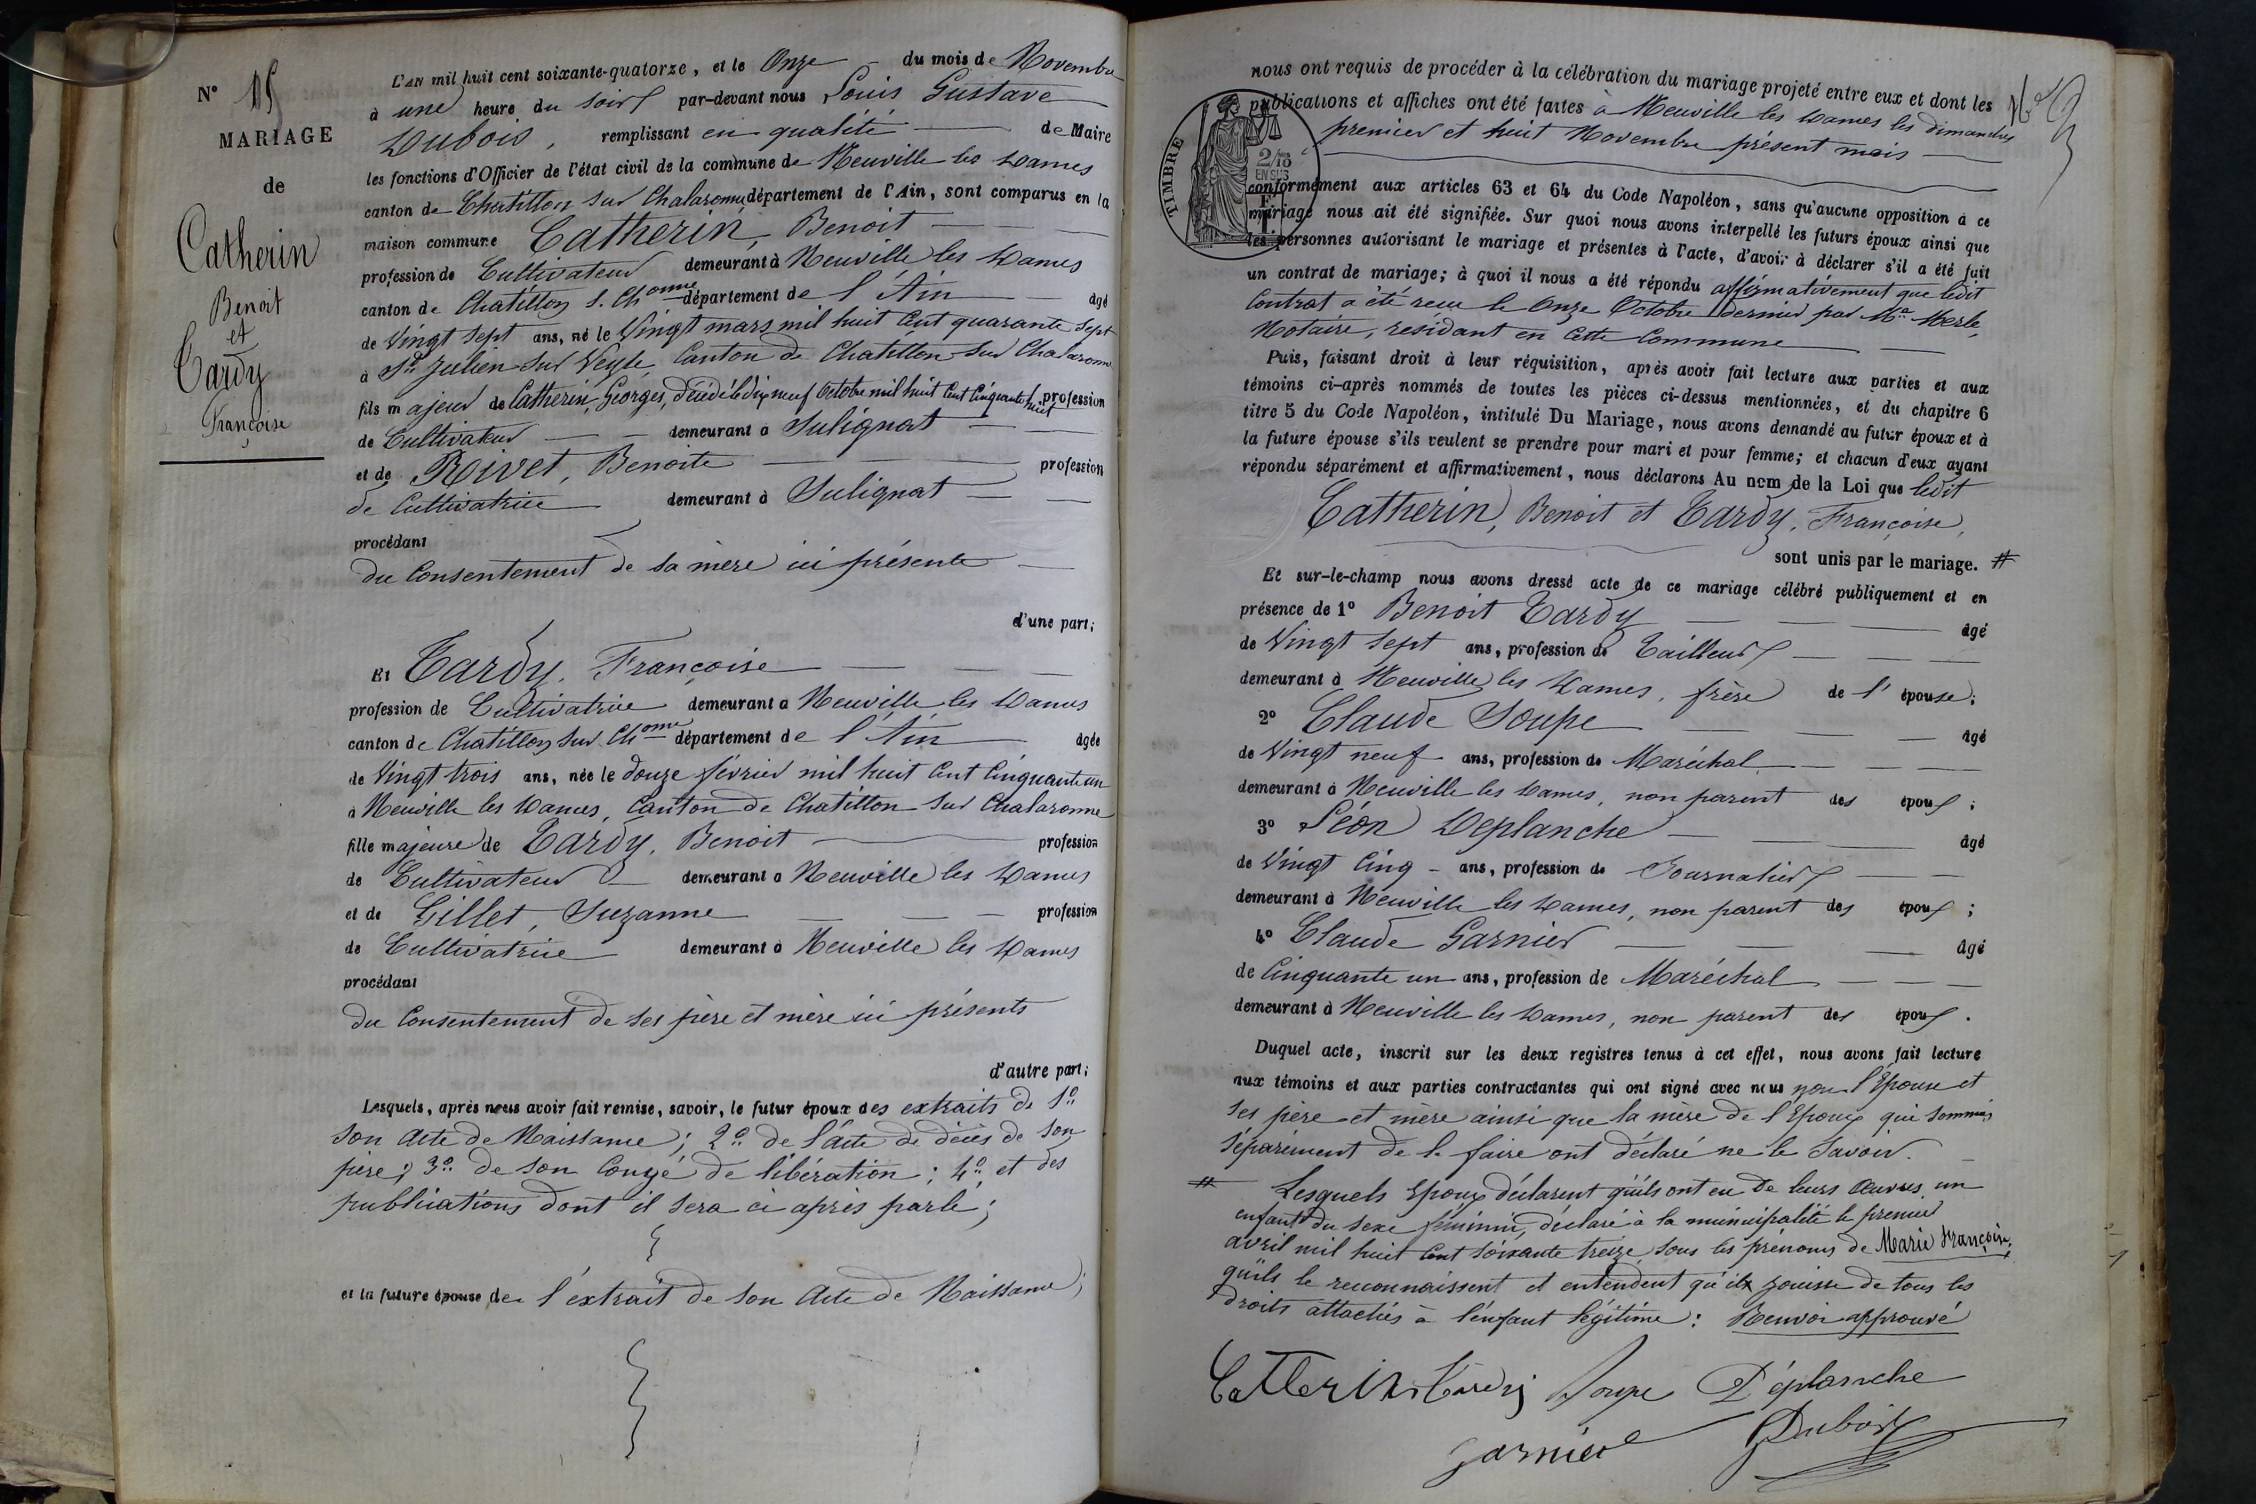 N° 15
MARIAGE
de
Catherin
Benoit
et
Tardy
Françoise
L'AN mil huit cent soixante-quatorze, et le Onze du mois de Novembre
à une heure du soir par-devant nous Louis Gustave
Dubois, remplissant en qualité de Maire
les fonctions d'Officier de l'état civil de la commune de Neuville les Dames
canton de Chatillon sur Chalaronne département de l'Ain, sont comparus en la
maison commune Catherin, Benoit
profession de Cultivateur demeurant à Neuville les Dames
canton de Chatillon s. Chonne département de l'Ain âgé
de Vingt sept ans, né le Vingt mars mil huit Cent quarante sept
à St Julien sur Veyle, Canton de Chatillon sur Chalaronne
fils majeur de Catherin, Georges, décédé le dix neuf Octobre mil huit Cent Cinquante huit profession
de Cultivateur demeurant à Sulignat
et de Roivet, Benoite profession
de Cultivatrice demeurant à Sulignat
procédant
du Consentement de sa mère ici présente
d'une part;
Et Tardy, Françoise
profession de Cultivatrice demeurant à Neuville les Dames
canton de Chatillon sur Chonne département de l'Ain âgée
de Vingt trois ans, née le douze février mil huit Cent Cinquante un
à Neuville les Dames, Canton de Chatillon sur Chalaronne
fille majeure de Tardy, Benoit profession
de Cultivateur demeurant à Neuville les Dames
et de Gillet, Suzanne profession
de Cultivatrice demeurant à Neuville les Dames
procédant
du Consentement de ses père et mère ici présents
d'autre part;
Lesquels, après nous avoir fait remise, savoir, le futur époux des extraits de 1°
son Acte de Naissance; 2° de l'acte de décès de son
père; 3° de son Congé de libération; 4° et des
publications dont il sera ci après parlé;
et la future épouse de l'extrait de son Acte de Naissance;
nous ont requis de procéder à la célébration du mariage projeté entre eux et dont les
publications et affiches ont été faites à Neuville les Dames les dimanches
premier et huit Novembre présent mois
TIMBRE
2/10
EN SUS
conformément aux articles 63 et 64 du Code Napoléon, sans qu'aucune opposition à ce
mariage nous ait été signifiée. Sur quoi nous avons interpellé les futurs époux ainsi que
les personnes autorisant le mariage et présentes à l'acte, d'avoir à déclarer s'il a été fait
un contrat de mariage; à quoi il nous a été répondu affirmativement que ledit
Contrat a été reçu le Onze Octobre dernier par Me Merle,
Notaire, résidant en Cette Commune
Puis, faisant droit à leur réquisition, après avoir fait lecture aux parties et aux
témoins ci-après nommés de toutes les pièces ci-dessus mentionnées, et du chapitre 6
titre 5 du Code Napoléon, intitulé Du Mariage, nous avons demandé au futur époux et à
la future épouse s'ils veulent se prendre pour mari et pour femme; et chacun d'eux ayant
répondu séparément et affirmativement, nous déclarons Au nom de la Loi que ledit
Catherin, Benoit et Tardy, Françoise,
sont unis par le mariage. #
Et sur-le-champ nous avons dressé acte de ce mariage célébré publiquement et en
présence de 1° Benoit Tardy âgé
de Vingt sept ans, profession de Tailleur
demeurant à Neuville les Dames, frère de l'épouse;
2° Claude Soupe âgé
de Vingt neuf ans, profession de Maréchal
demeurant à Neuville les Dames, non parent des époux;
3° Léon Deplanche âgé
de Vingt Cinq ans, profession de Journalier
demeurant à Neuville les Dames, non parent des époux;
4° Claude Garnier âgé
de Cinquante un ans, profession de Maréchal
demeurant à Neuville les Dames, non parent des époux.
Duquel acte, inscrit sur les deux registres tenus à cet effet, nous avons fait lecture
aux témoins et aux parties contractantes qui ont signé avec nous non l'Epouse et
ses père et mère ainsi que la mère de l'Epoux qui sommés
séparément de le faire ont déclaré ne le Savoir.
# Lesquels Epoux déclarent qu'ils ont eu de leurs Oeuvres un
enfant du sexe féminin, déclaré à la municipalité le premier
avril mil huit Cent soixante treize sous les prénoms de Marie Françoise,
qu'ils le reconnaissent et entendent qu'il jouisse de tous les
droits attachés à l'enfant légitime: Renvoi approuvé
Catterin Tardy Soupe Déplanche
Garnier Dubois